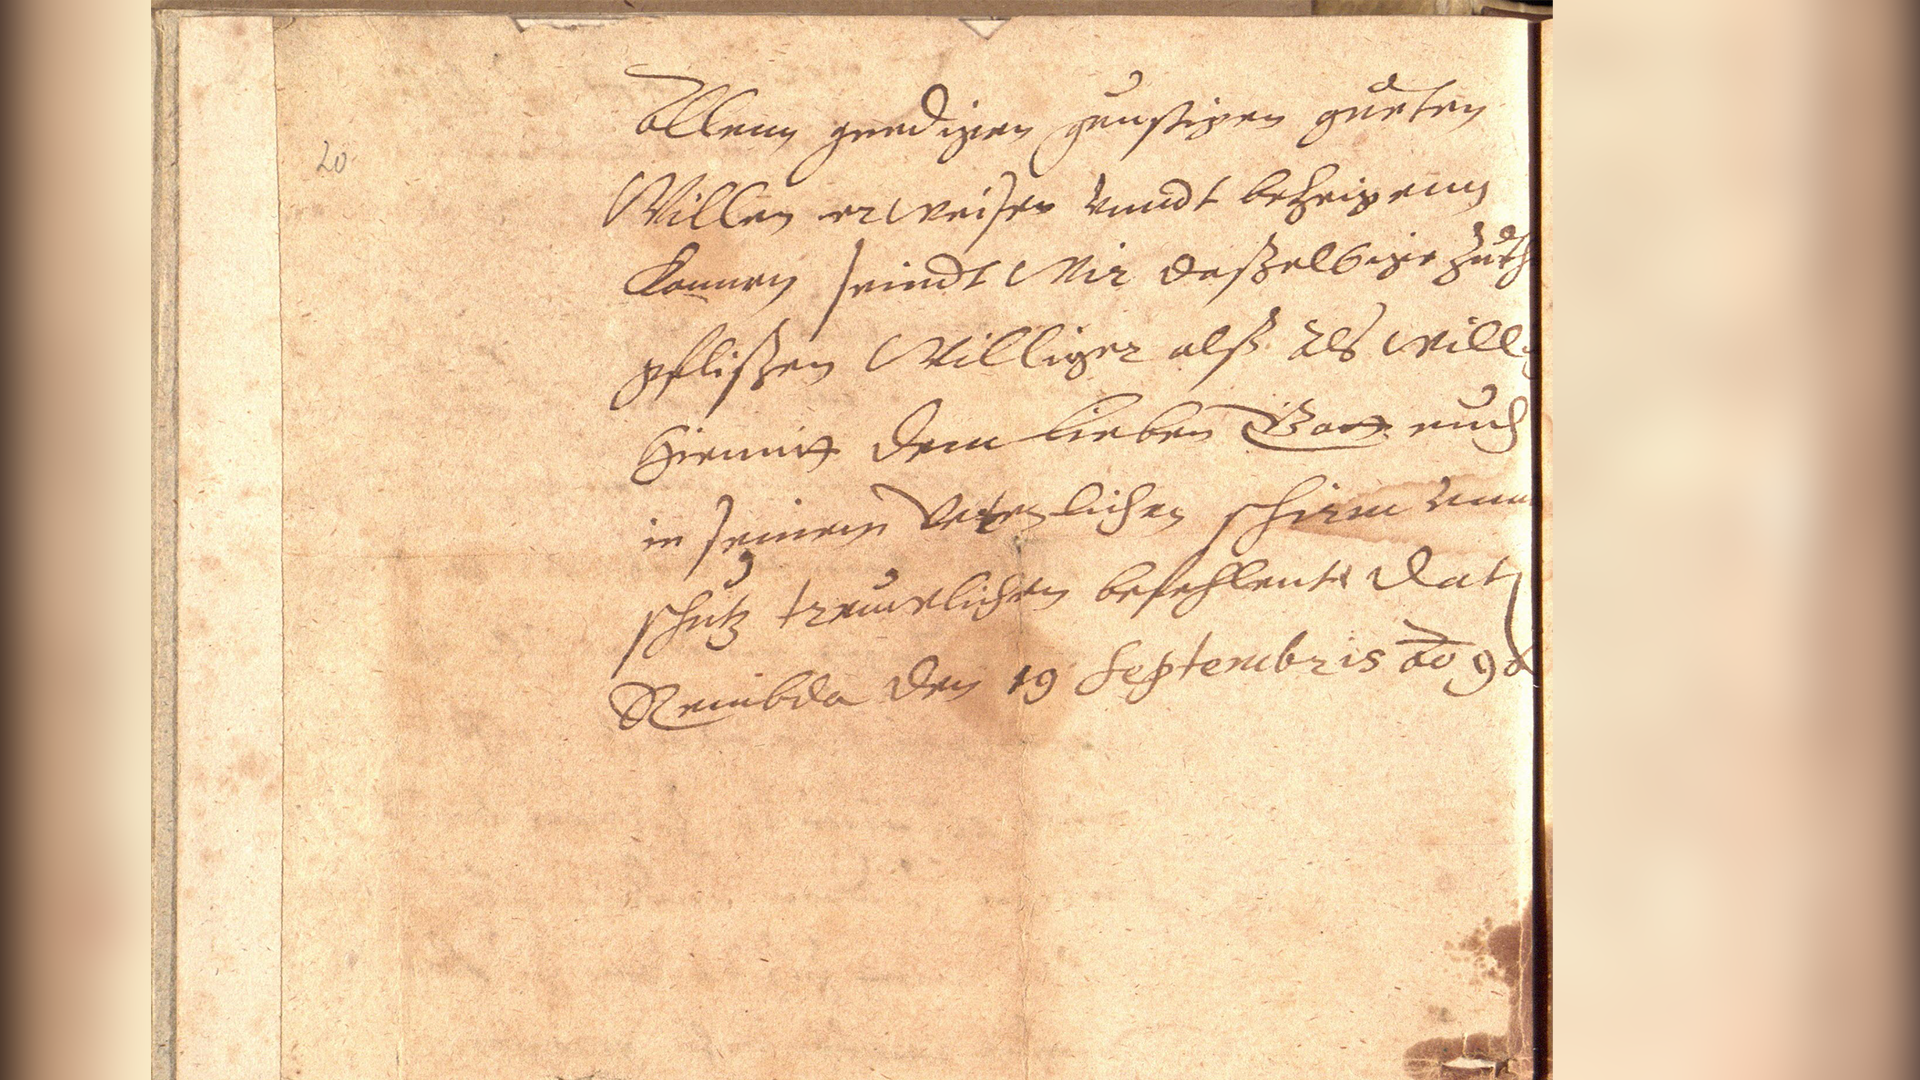 20
Allenn gnedigen günstigen gueten
Willen erweisen vnndt bezeigenn
konnen seindt Wir daßelbige zuth
pflißen Williger alß als willig
hiermitt dem lieben Gott euch
in seinem veterlichen schirm vnn
schutz treuwelichen befehlent Dat
Rembda den 19 Septembris Ao 98